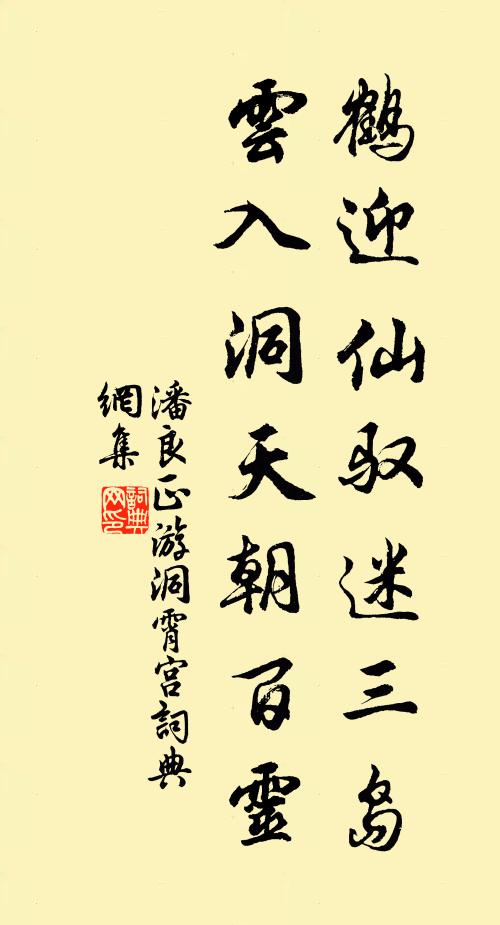 鹤迎仙驭迷三岛
雲入洞天朝百靈
潘良正游洞霄宫詞典
網集
詞典
网印